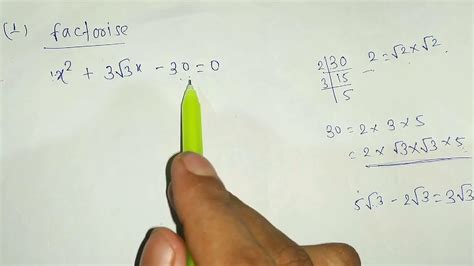 (1) factorise
x² + 3√3x - 30 = 0
2|30
3|15
|5
2 = √2 x √2
30 = 2 x 3 x 5
= 2 x √3 x √3 x 5
5√3 - 2√3 = 3√3